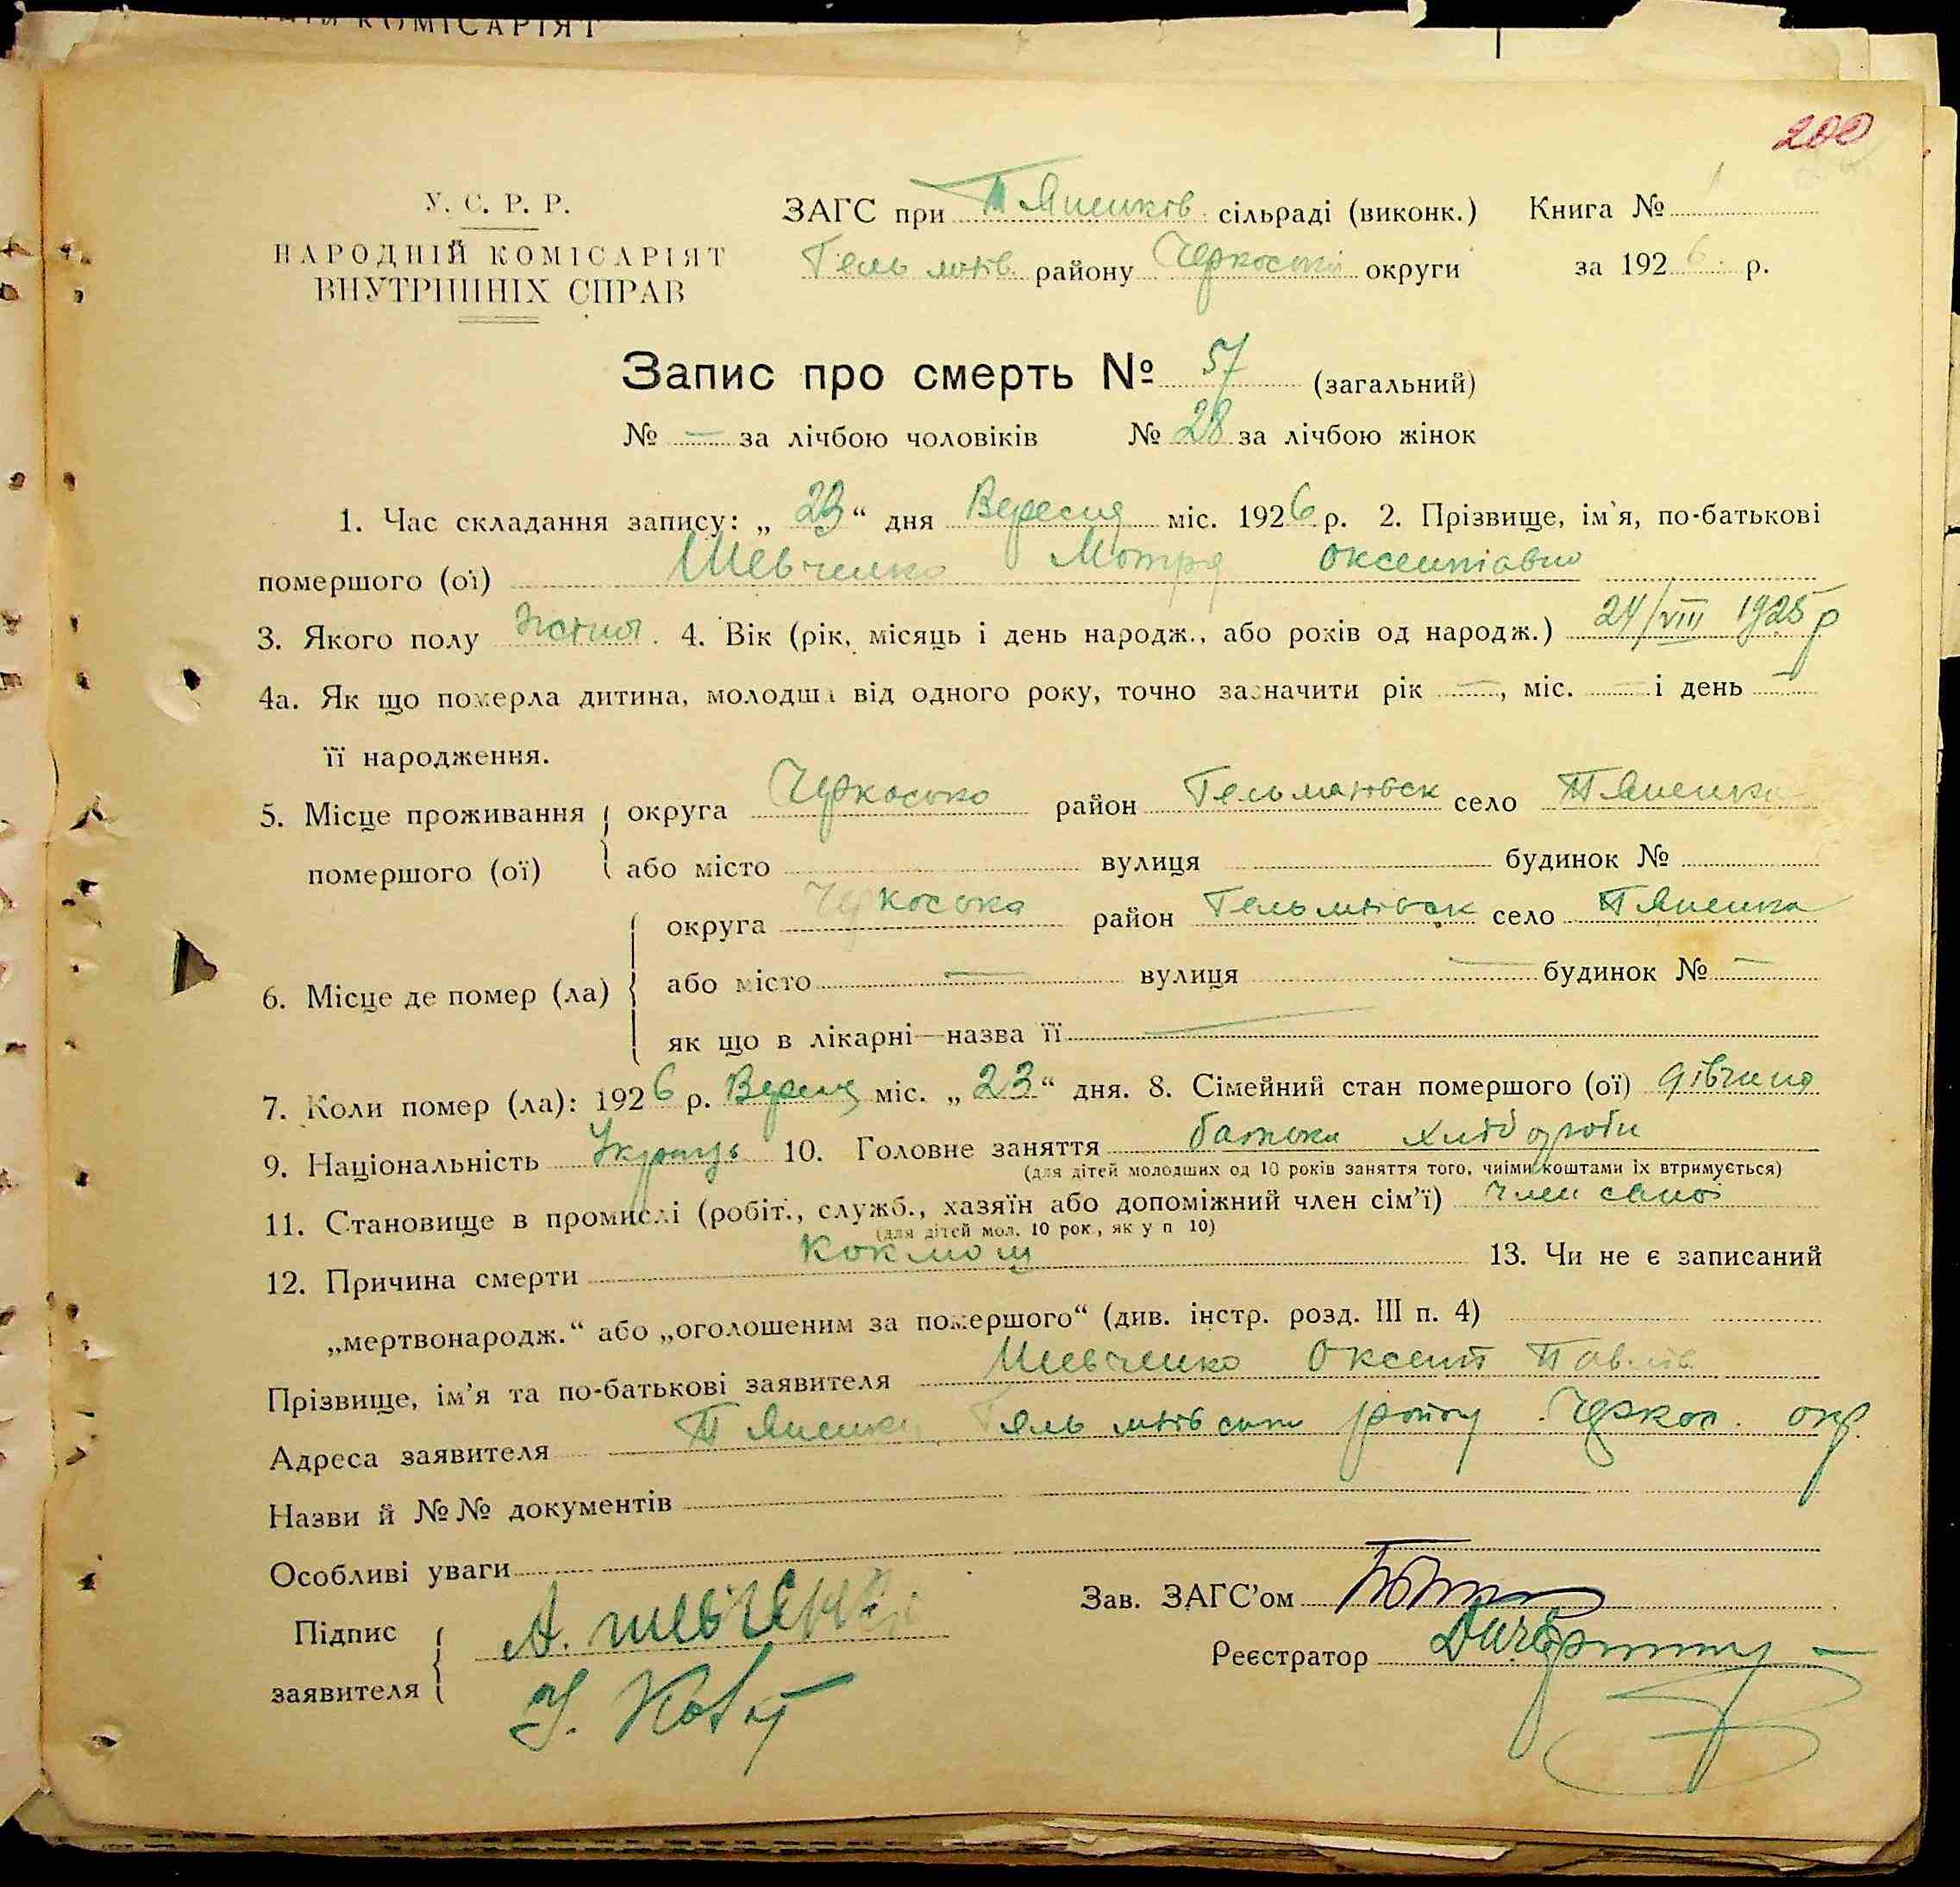 КОМІСАРІЯТ
200
У. С. Р. Р.
НАРОДНІЙ КОМІСАРІЯТ
ВНУТРІШНІХ СПРАВ
ЗАГС при сільраді (виконк.) Книга № 1
району Черкоської округи за 1926 р.
Запис про смерть № 57 (загальний)
№ — за лічбою чоловіків № 28 за лічбою жінок
1. Час складання запису: „ 23 “ дня Вересня міс. 1926 р. 2. Прізвище, ім'я, по-батькові
помершого (ої) Шевченко Мотря Оксентіавно
3. Якого полу 4. Вік (рік, місяць і день народж., або років од народж.) 24/VIII 1925 р
4а. Як що померла дитина, молодша від одного року, точно зазначити рік —, міс. — і день —
її народження.
5. Місце проживання округа Черкосько район Гельмязівск село
помершого (ої) або місто вулиця будинок №
округа Черкоська район Гельмязівск село
6. Місце де помер (ла) або місто — вулиця — будинок № —
як що в лікарні—назва її —
7. Коли помер (ла): 1926 р. Вересня міс. „ 23 “ дня. 8. Сімейний стан помершого (ої) дівчина
9. Національність 10. Головне заняття батька хліборобів
(для дітей молодших од 10 років заняття того, чиїми коштами їх втримується)
11. Становище в промислі (робіт., служб., хазяїн або допоміжний член сім'ї) член
(для дітей мол. 10 рок., як у п 10)
12. Причина смерти Коклюш 13. Чи не є записаний
„мертвонародж.“ або „оголошеним за помершого“ (див. інстр. розд. III п. 4)
Прізвище, ім'я та по-батькові заявителя Шевченко Оксент Павлів
Адреса заявителя району Черкос. окр
Назви й №№ документів
Особливі уваги
Підпис А. Шевченко
заявителя
Зав. ЗАГС'ом
Реєстратор